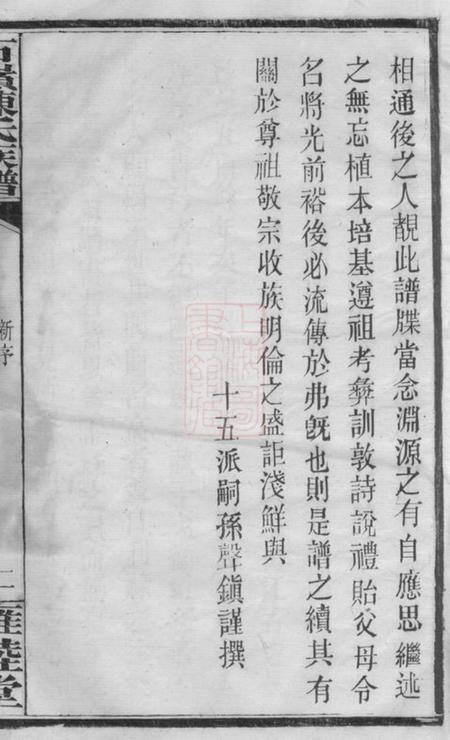 相通後之人覩此譜牒當念淵源之有自應思繼述
之無忘植本培基遵祖考彝訓敦詩說禮貽父母令
名將光前裕後必流傳於弗旣也則是譜之續其有
關於尊祖敬宗收族明倫之盛詎淺鮮與
十五派嗣孫聲鎮謹撰
陳氏族譜
新序
二
雍睦堂